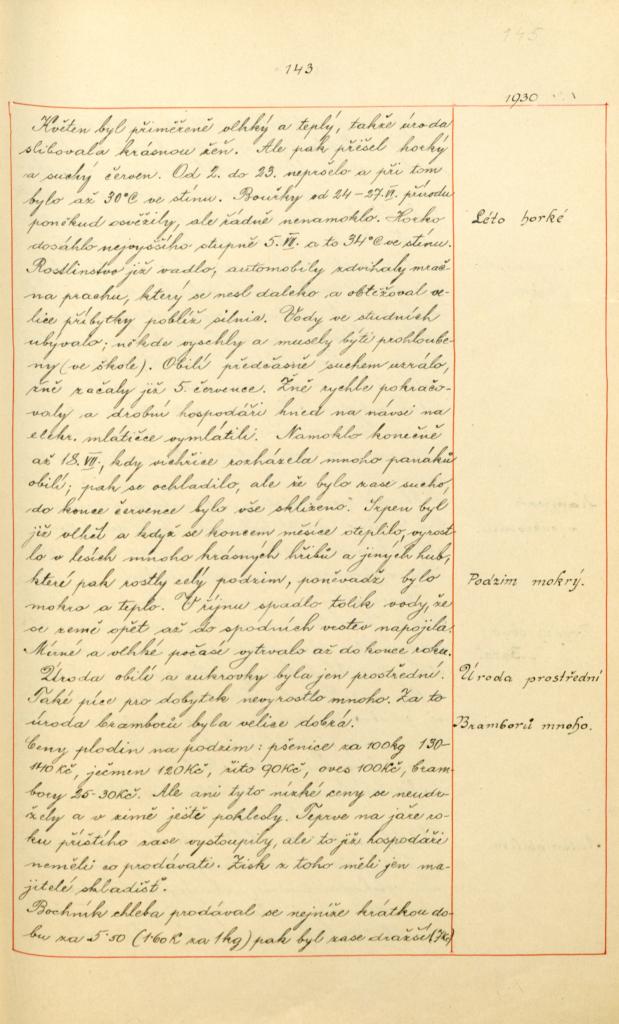 145
143
1930
Květen byl přiměřeně vlhký a teplý, takže úroda
slibovala krásnou žeň. Ale pak přišel horký
a suchý červen. Od 2. do 23. nepršelo a při tom
bylo až 30°C ve stínu. Bouřky od 24-27.VI. přírodu
poněkud osvěžily, ale řádně nenamoklo. Horko
Léto horké
dosáhlo nejvyššího stupně 5. VII. a to 34°C ve stínu.
Rostlinstvo již vadlo, automobily zdvihaly mrač-
na prachu, který se nesl daleko a obtěžoval ve-
lice příbytky poblíž silnic. Vody ve studních
ubývalo; někde vyschly a musely býti prohloube-
ny (ve škole). Obilí předčasně suchem uzrálo,
žně začaly již 5. července. Žně rychle pokračo-
valy a drobní hospodáři hned na návsi na
elektr. mlátičce vymlátili. Namoklo konečně
až 18. VII., kdy vichřice rozházela mnoho panáků
obilí; pak se ochladilo, ale že bylo zase sucho,
do konce července bylo vše sklizeno. Srpen byl
již vlhčí a když se koncem měsíce oteplilo, vyrost-
lo v lesích mnoho krásných hřibů a jiných hub,
které pak rostly celý podzim, poněvadž bylo
Podzim mokrý.
mokro a teplo. V říjnu spadlo tolik vody, že
se země opět až do spodních vrstev napojila.
Mírné a vlhké počasí vytrvalo až do konce roku.
Úroda obilí a cukrovky byla jen prostřední.
Úroda prostřední
Také píce pro dobytek nevyrostlo mnoho. Za to
úroda bramborů byla velice dobrá.
Bramborů mnoho.
Ceny plodin na podzim: pšenice za 100kg 130-
140Kč, ječmen 120Kč, žito 90Kč, oves 100Kč, bram-
bory 25-30Kč. Ale ani tyto nízké ceny se neudr-
žely a v zimě ještě poklesly. Teprve na jaře ro-
ku příštího zase vystoupily, ale to již hospodáři
neměli co prodávati. Zisk z toho měli jen ma-
jitelé skladišť.
Bochník chleba prodával se nejníže krátkou do-
bu za 5·50 (1·60K za 1kg) pak byl zase dražší (7Kč)